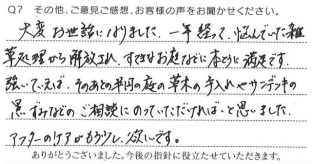 Q7 その他、ご意見ご感想、お客様の声をお聞かせください。
大変お世話になりました。一年経って、悩んでいた雑
草処理から解放され、すてきなお庭などに本当に満足です。
強いていえば、そのあと半円の庭の草木の手入れやサンデッキの
黒ずみなどのご相談にのっていただければ…と思いました。
アフターのケアがもう少し欲しいです。
ありがとうございました。今後の指針に役立たせていただきます。